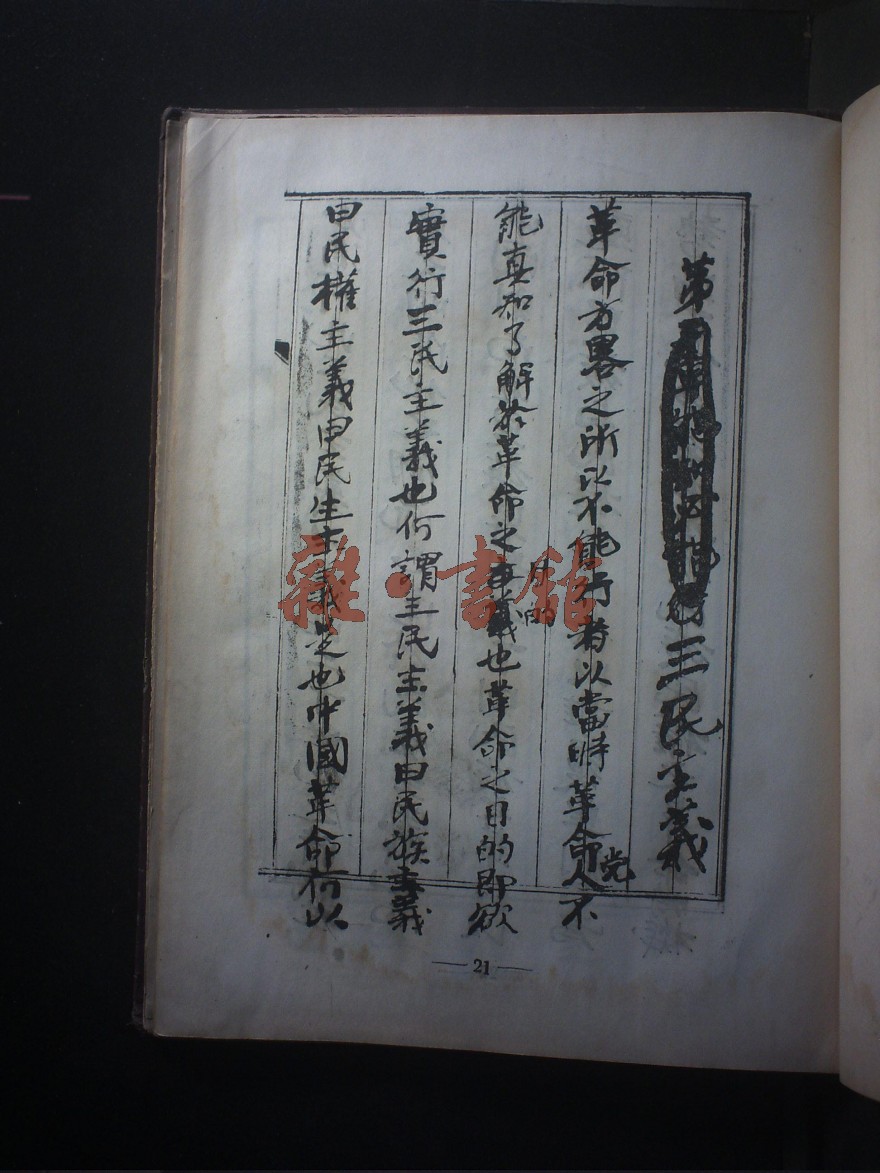 第 三民主義
革命方畧之所以不能行者以當時革命党人不
能真知了解於革命之目的也革命之目的即欲
實行三民主義也何謂三民主義曰民族主義
曰民權主義曰民生主義是也中國革命何以
21
雜·書館